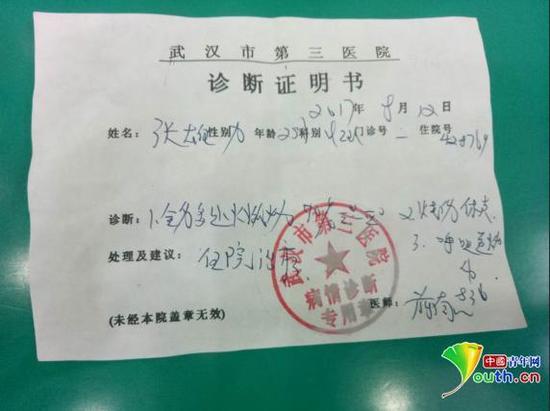 武汉市第三医院
诊断证明书
2017年8月12日
姓名: 张 性别 年龄25岁科别 门诊号 一 住院号
诊断: 1.全身多处火焰烧伤 70% 2.烧伤休克
3.呼吸道烧伤
处理及建议: 住院治疗
武汉市第三医院
病情诊断
专用章
医师:
(未经本院盖章无效)
中國青年网
Youth.cn